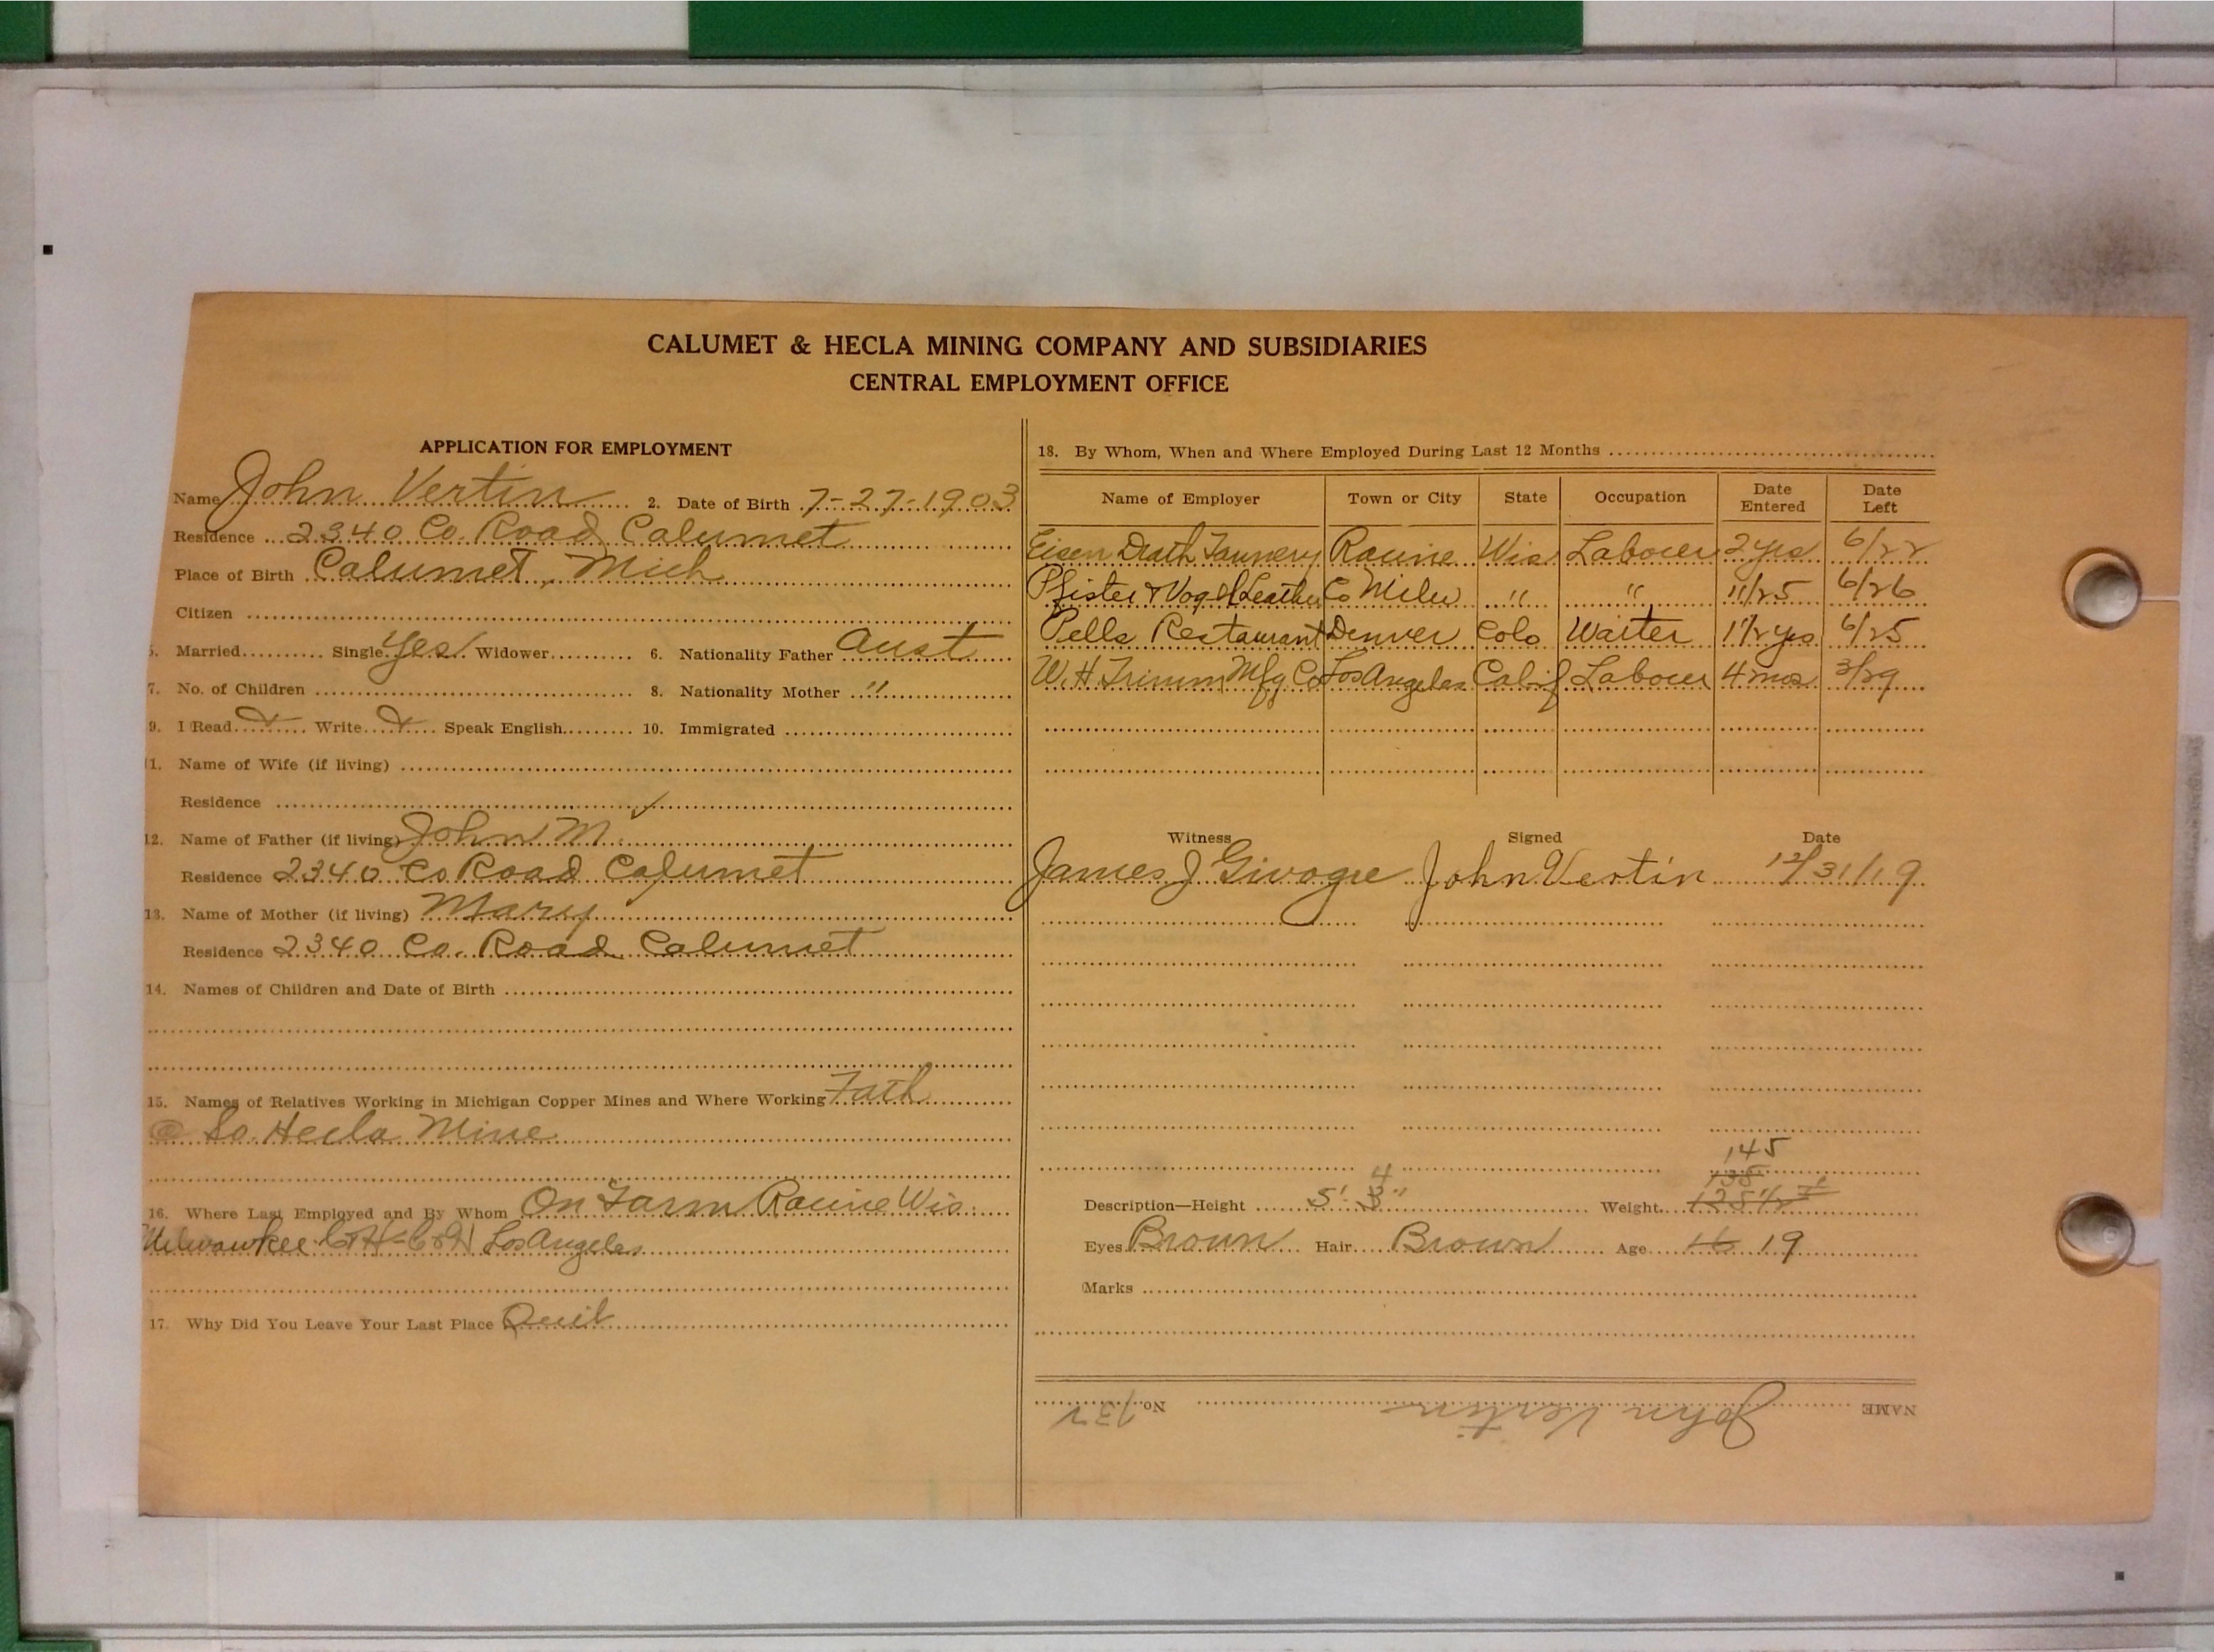 CALUMET & HECLA MINING COMPANY AND SUBSIDIARIES
CENTRAL EMPLOYMENT OFFICE
APPLICATION FOR EMPLOYMENT
Name John Vertin 2. Date of Birth 7-27-1903
Residence 2340 Co. Road Calumet
Place of Birth Calumet, Mich
Citizen
5. Married Single Yes Widower 6. Nationality Father Aust
7. No. of Children 8. Nationality Mother "
9. I Read Write Speak English 10. Immigrated
11. Name of Wife (if living)
Residence
12. Name of Father (if living) John M.
Residence 2340 Co Road Calumet
13. Name of Mother (if living) Mary
Residence 2340 Co. Road Calumet
14. Names of Children and Date of Birth
15. Names of Relatives Working in Michigan Copper Mines and Where Working Fath
@ So. Hecla Mine
16. Where Last Employed and By Whom On Farm Racine Wis.
Milwaukee C&H-C&H Los Angeles
17. Why Did You Leave Your Last Place Quit
18. By Whom, When and Where Employed During Last 12 Months
Name of Employer Town or City State Occupation Date Entered Date Left
Eisen Drath Tannery Racine Wis Laborer 2 yrs 6/22
Pfister & Vogel Leather Co Milw " " 11/25 6/26
Pells Restaurant Denver Colo Waiter 1 1/2 yrs 6/25
W.H. Trimm Mfg Co Los Angeles Calif Laborer 4 mos 3/29
Witness Signed Date
James J John Vertin 12/31/19
145
4 135
Description—Height 5' 3" Weight 128 1/2
Eyes Brown Hair Brown Age 16 19
Marks
NAME John Vertin No. 732